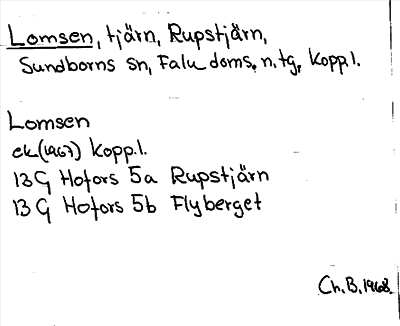 Lomsen, tjärn, Rupstjärn,
Sundborns sn, Falu doms. n. tg, Kopp.l.
Lomsen
ek (1967) Kopp.l.
13G Hofors 5a Rupstjärn
13G Hofors 5b Flyberget
Ch. B. 1968.